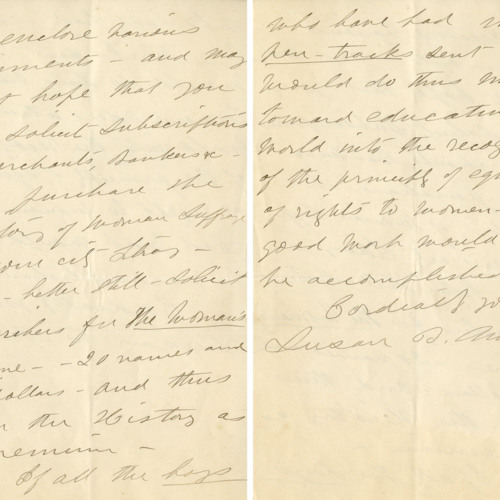 enclose various
ments - and may
hope that you
solicit subscriptions
erchants, Bankers &c -
purchase the
tory of Woman Suffrage
your city Library -
- better still - solicit
cribers for The Woman's
ne - - 20 names and
dollars - and thus
the History as
remium -
If all the boys
who have had
pen-tracks sent
would do thus
toward educatin
world into the recog
of the principle of equ
of rights to women -
good work would
be accomplished
Cordially yo
Susan B. An